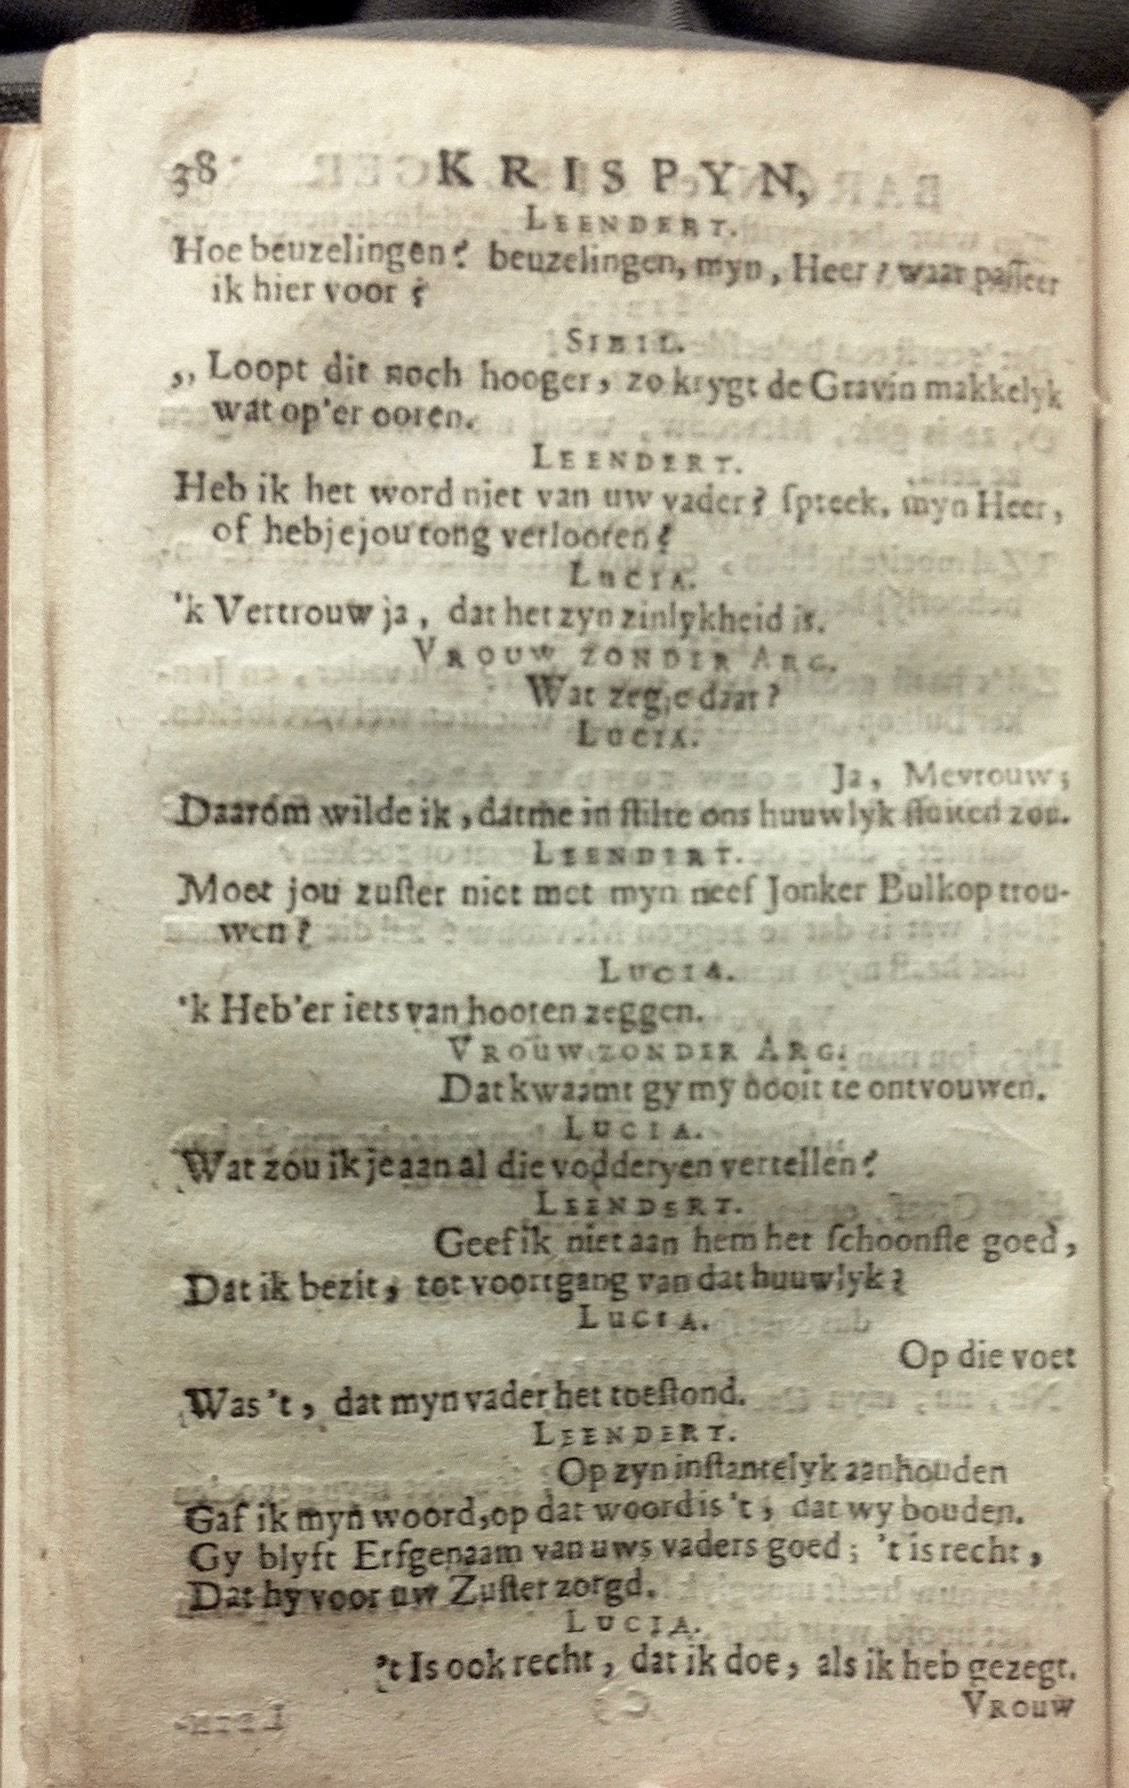 38 KRISPYN,
LEENDERT.
Hoe beuzelingen? beuzelingen, myn, Heer? waar passeer
ik hier voor?
SIBIL.
,, Loopt dit noch hooger, zo krygt de Gravin makkelyk
wat op'er ooren.
LEENDERT.
Heb ik het word niet van uw vader? spreek. myn Heer,
of hebjejou tong verlooren?
LUCIA.
'k Vertrouw ja, dat het zyn zinlykheid is.
VROUW ZONDER ARG.
Wat zegje daar?
LUCIA.
Ja, Mevrouw;
Daarom wilde ik, datme in stilte ons huuwlyk sluiten zou.
LEENDERT.
Moet jou zuster niet met myn neef Jonker Bulkop trou-
wen?
LUCIA.
'k Heb'er iets van hooren zeggen.
VROUW ZONDER ARG.
Dat kwaamt gy my nooit te ontvouwen.
LUCIA.
Wat zou ik je aan al die vodderyen vertellen?
LEENDERT.
Geef ik niet aan hem het schoonste goed,
Dat ik bezit, tot voortgang van dat huuwlyk?
LUCIA.
Op die voet
Was 't, dat myn vader het toestond.
LEENDERT.
Op zyn instantelyk aanhouden
Gaf ik myn woord, op dat woord is 't, dat wy bouden.
Gy blyft Erfgenaam van uws vaders goed; 't is recht,
Dat hy voor uw Zuster zorgd.
LUCIA.
't Is ook recht, dat ik doe, als ik heb gezegt.
VROUW